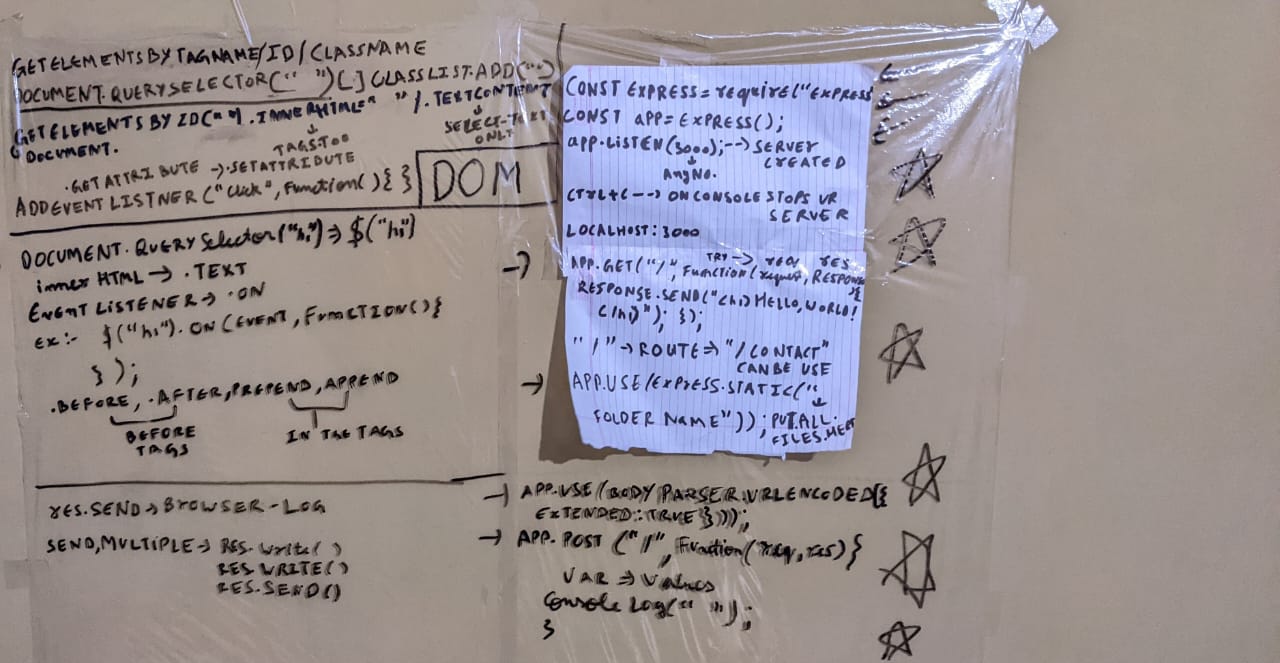 GETELEMENTSBYTAGNAME/ID/CLASSNAME
DOCUMENT.QUERYSELECTOR(" ")[.]CLASSLIST.ADD(" ")
GETELEMENTSBYID(" "). INNERHTML=" "/.TEXTCONTENT
DOCUMENT.
TAGS.TOO
SELECT-TEXT
ONLY
.GETATTRIBUTE → .SETATTRIBUTE
ADDEVENTLISTNER ("click", Function( ) { }
DOM
DOCUMENT.QUERYSelector("hi") ⇒ $("hi")
inner HTML → .TEXT
EVENT LISTENER → .ON
Ex:- $("hi").ON(EVENT, FUNCTION(){
});
.BEFORE, .AFTER, PREPEND, APPEND
BEFORE
TAGS
IN THE TAGS
res.SEND → BROWSER-LOG
SEND,MULTIPLE → RES.Write()
RES.WRITE()
RES.SEND()
CONST EXPRESS = require("EXPRESS
CONST APP = EXPRESS();
app.LISTEN(3000); --> SERVER
CREATED
Any No.
CTrL+C --> ON CONSOLE STOPS UR
SERVER
LOCALHOST:3000
TRY --> req res
→ APP.GET("/", Function(request, RESPONSE
){
RESPONSE.SEND("<hi>HELLO,WORLD!
</hi>"); });
"/" → ROUTE ⇒ "/CONTACT"
CAN BE USE
→ APP.USE(EXPRESS.STATIC("
FOLDER NAME")); PUT.ALL.
FILES.HERE
→ APP.USE(BODYPARSER.URLENCODED({
EXTENDED:TRUE}));
→ APP.POST ("/", Function(req,res){
VAR ⇒ Values
Console Log(" ");
}